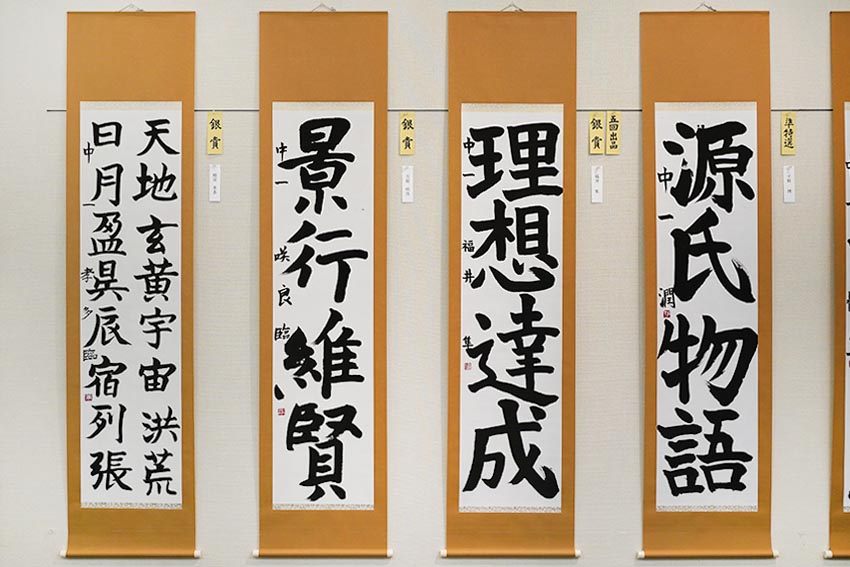 天地玄黄宇宙洪荒
日月盈昃辰宿列張
中一 孝多臨
銀賞
景行維賢
中一 咲良臨
銀賞
理想達成
中一 福井隼
五回出品
銀賞
源氏物語
中一 潤
準特選